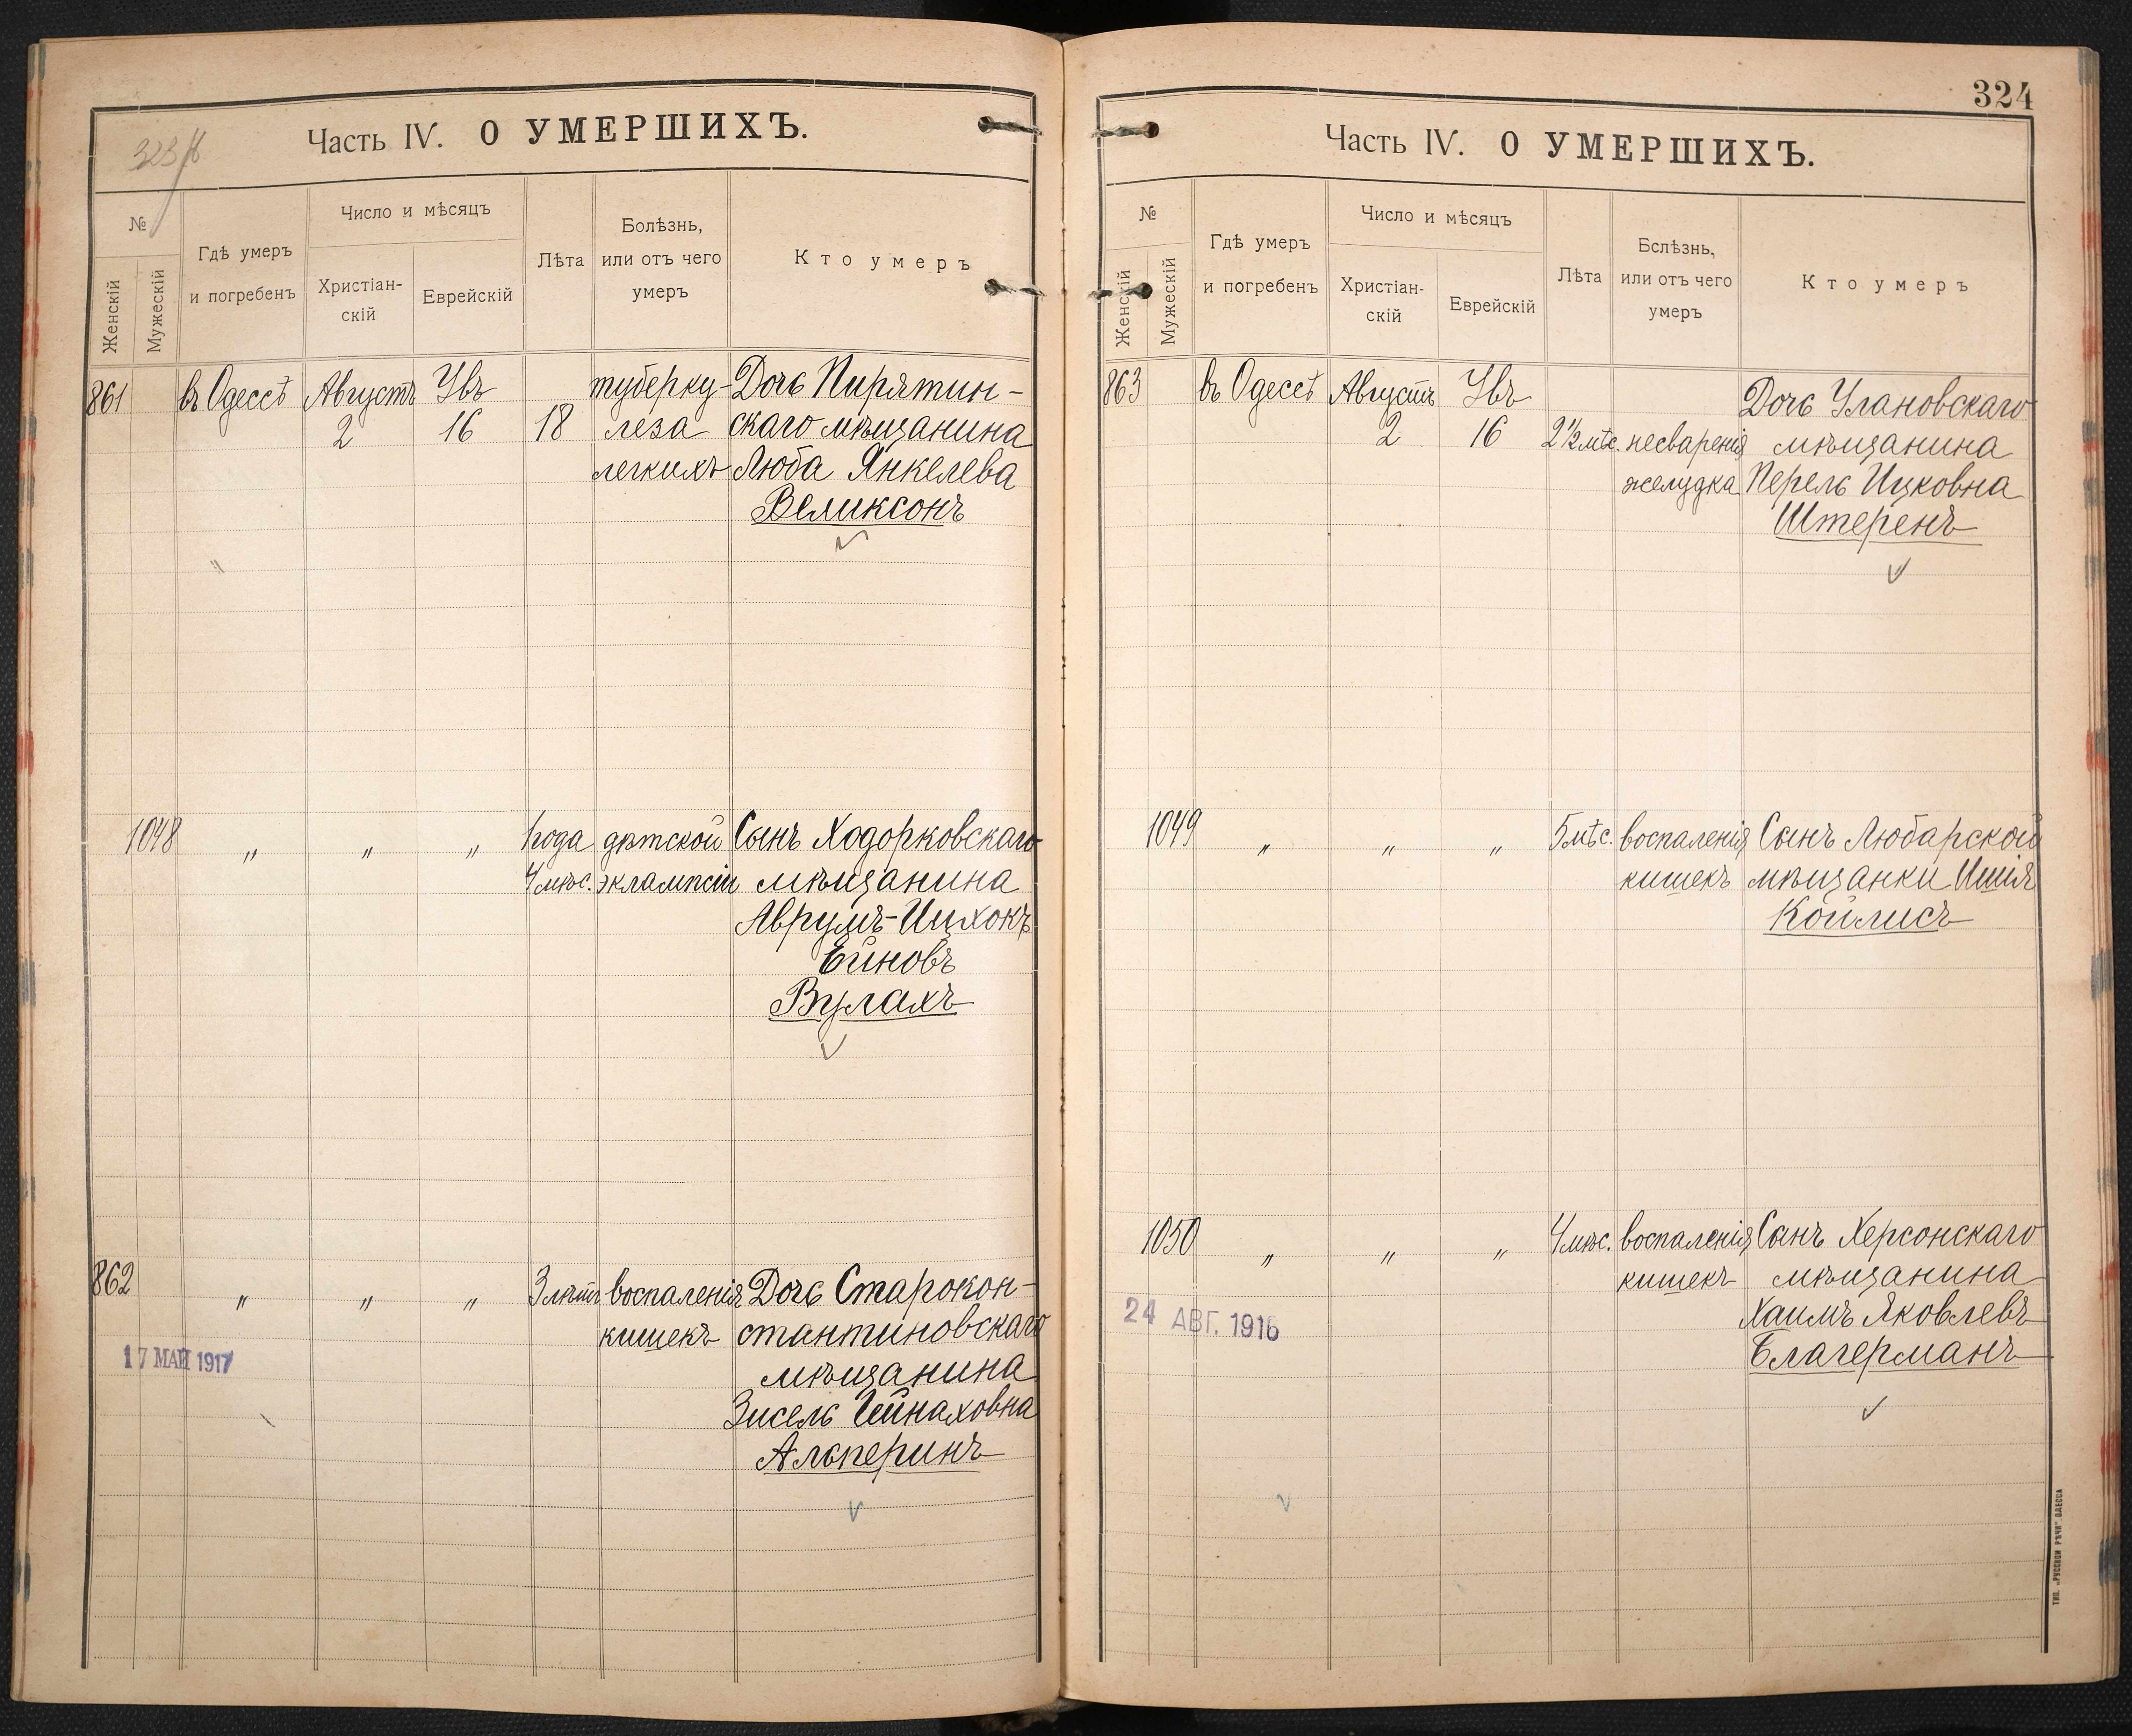 Часть IV. О УМЕРШИХЪ.
№
Женскій
Мужескій
Гдѣ умеръ
и погребенъ
Число и мѣсяцъ
Христіан-
скій
Еврейскій
Лѣта
Болѣзнь,
или отъ чего
умеръ
Кто умеръ
861 въ Одессѣ Августъ Увъ туберку- Дочь Пирятин-
2 16 18 леза скаго мѣщанина
легкихъ Люба Янкелева
Великсонъ
1048 " " " 1 года дѣтской Сынъ Ходорковскаго
4 мѣс. эклампсіи мѣщанина
Аврумъ-Ицхокъ
Ейновъ
Вулахъ
862 " " " 3 лѣтъ воспаленія Дочь Старокон-
кишекъ стантиновскаго
17 МАЙ 1917 мѣщанина
Зисель Гейнаховна
Альперинъ
324
Часть IV. О УМЕРШИХЪ.
№
Женскій
Мужескій
Гдѣ умеръ
и погребенъ
Число и мѣсяцъ
Христіан-
скій
Еврейскій
Лѣта
Бслѣзнь,
или отъ чего
умеръ
Кто умеръ
863 въ Одессѣ Августъ Увъ Дочь Улановскаго
2 16 2 1/2 мѣс. несваренія мѣщанина
желудка Перель Ицковна
Штеренъ
1049 " " " 5 мѣс. воспаленія Сынъ Любарской
кишекъ мѣщанки Ишія
Койлисъ
1050 " " " 4 мѣс. воспаленія Сынъ Херсонскаго
кишекъ мѣщанина
24 АВГ. 1916 Хаимъ Яковлевъ
Благерманъ
ТИП. „РУССКОЙ РѢЧИ" ОДЕССА